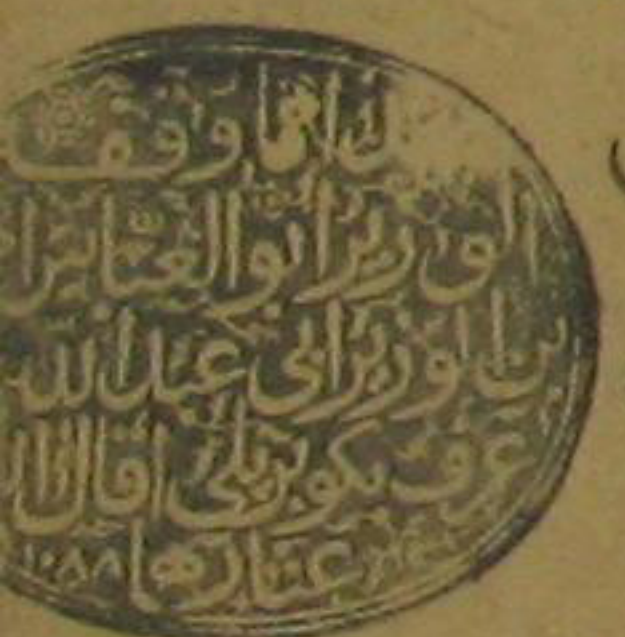 هذا مما وقف
الوزير ابو العباس ا
بن الوزير ابي عبد الله
عرف بكوبريلي اقال الله
عثارهما ١٠٨٨